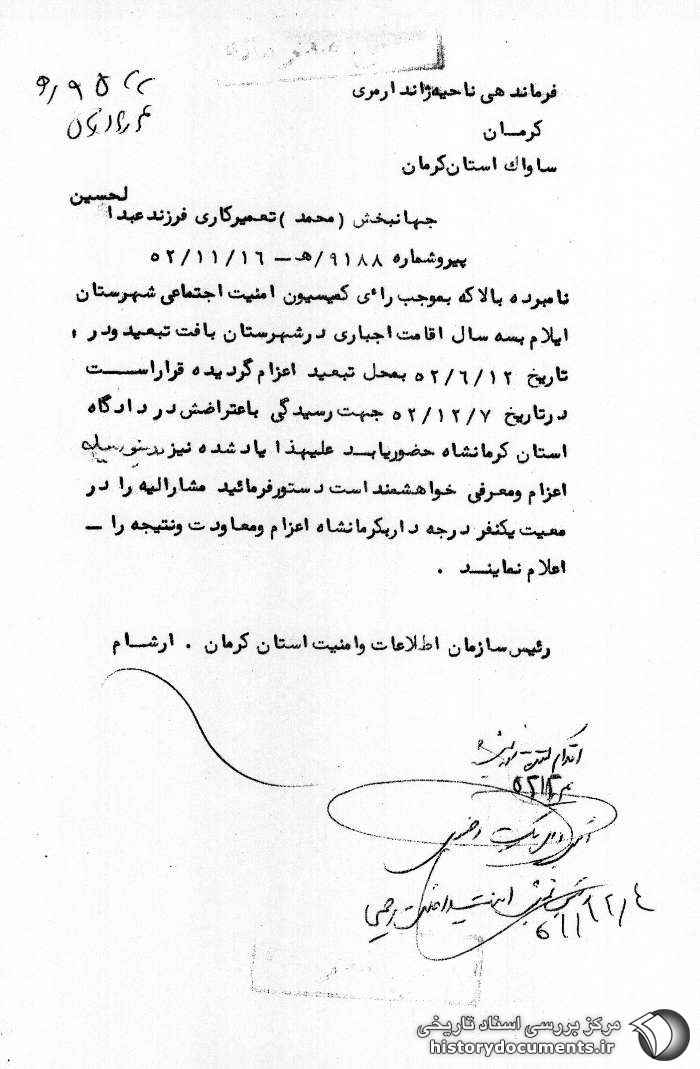 فرماندهی ناحیه ژاندارمری
کرمـان
ساواك استان کرمان
جهانبخش (محمد) تعمیرکاری فرزند عبدالحسین
پیرو شماره ۹۱۸۸/هـ - ۵۲/۱۱/۱۶
نامبرده بالا که بموجب رای کمیسیون امنیت اجتماعی شهرستان
ایلام بسه سال اقامت اجباری در شهرستان بافت تبعید و در
تاریخ ۵۲/۶/۱۲ بمحل تبعید اعزام گردیده قرار اسـت
در تاریخ ۵۲/۱۲/۷ جهت رسیدگی باعتراضش در دادگاه
استان کرمانشاه حضور یابـد علیهذا یاد شده نیز بدینوسیله
اعزام و معرفی خواهشمند است دستور فرمائید مشارالیه را در
معیت یکنفر درجه دار بکرمانشاه اعزام و معاودت و نتیجه را -
اعلام نماینـد .
رئیس سازمان اطلاعات و امنیت استان کرمان . ارشـام
مرکز بررسی اسناد تاریخی
historydocuments.ir